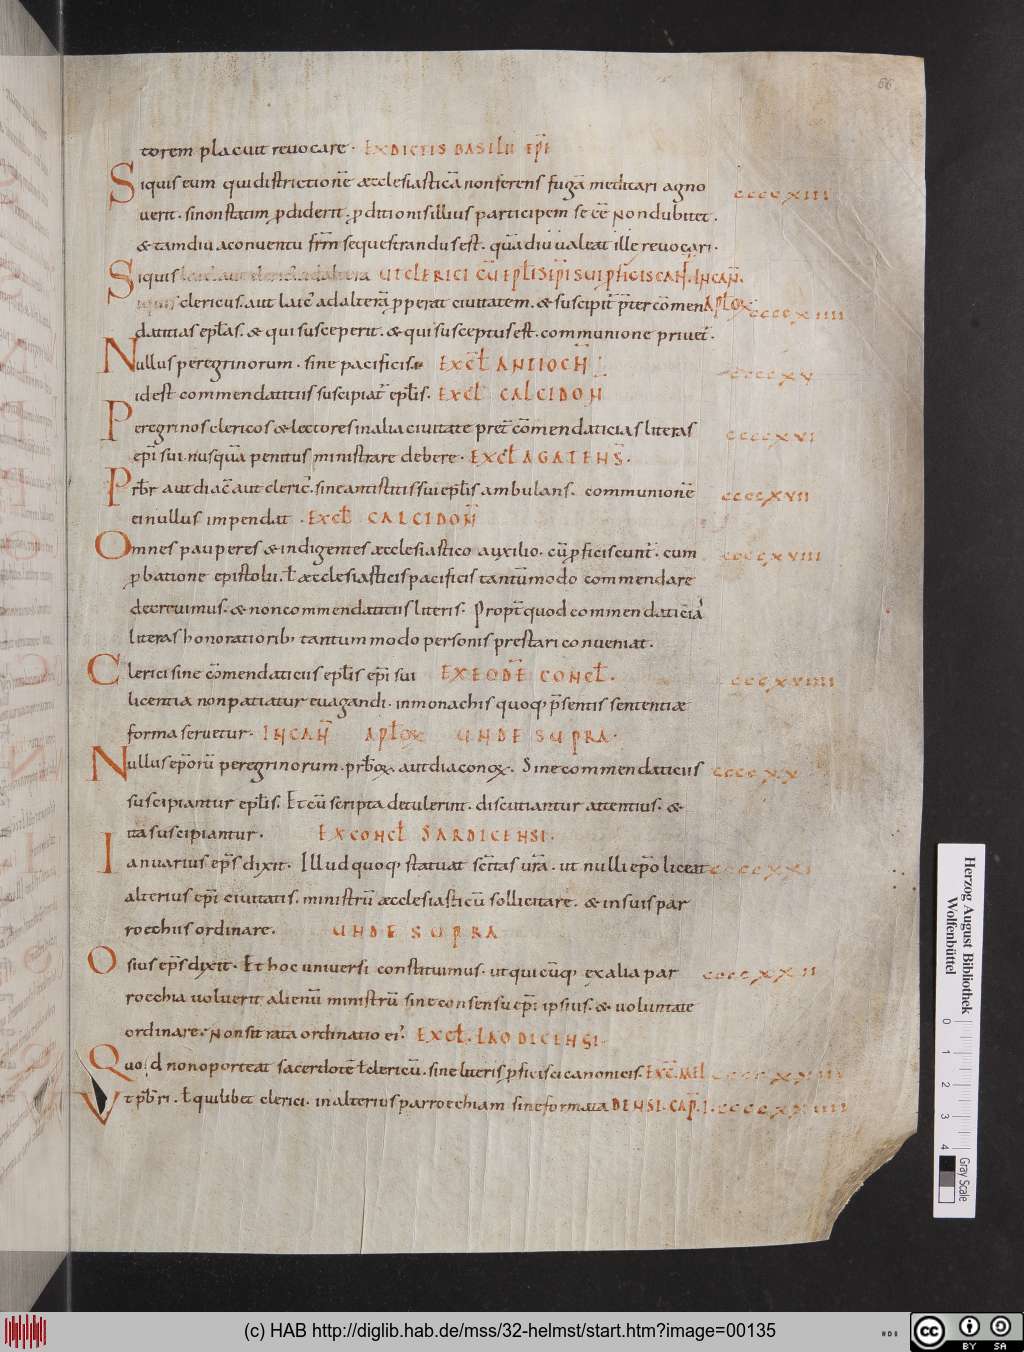 66
torem placuit reuocare. EX DICTIS BASILII EP̄I
Siquis eum qui districtionē æcclesiasticā non ferens fugā meditari agno
CCCCXIII
uerit. si non statim ꝓdiderit. ꝓditionis illius participem se ēē non dubitet.
& tamdiu a conuentu frm̄ sequestrandus est. quādiu ualeat ille reuocari.
Siquis UT CLERICI CŪ EPL̄IS EP̄I SUI ꝓFICISCAN̄. IN CAN̄.
clericus. aut laic᾽ ad alterā ꝓperat ciuitatem. & suscipit᾽ p̄ter cōmen APL̄OꝜ
CCCCXIIII
datitias epl̄as. & qui susceperit. & qui susceptus est. communione priuet᾽.
Nullus peregrinorum. sine pacificis EX CL̄ ANTIOCH̄
CCCCXV
id est commendatitiis suscipiat᾽ epl̄is. EX CL̄ CALCIDON̄
Peregrinos clericos & lectores in alia ciuitate pret̄ cōmendaticias literas
CCCCXVI
ep̄i sui. nusquā penitus ministrare debere. EX CL̄ AGATENS̄.
Prb̄r aut diac̄ aut cleric᾽. sine antistitis sui epl̄is ambulans. communionē
CCCCXVII
ei nullus impendat. EX CL̄ CALCIDON̄
Omnes pauperes & indigentes æcclesiastico auxilio. cū ꝓficiscunt᾽. cum
CCCCXVIII
ꝓbatione epistolii. ł æcclesiasticis pacificis tantūmodo commendare
decreuimus. & non commendatitiis literis. Propt̄ quod commendaticia
literas honoratiorib; tantum modo personis prestari conueniat.
Clerici sine cōmendaticiis epl̄is ep̄i sui EX EODĒ CONCL̄.
CCCCXVIIII
licentia non patiatur euagandi. in monachis quoq; p̄sentis sententiæ
forma seruetur. IN CAN̄ APL̄OꝜ UNDE SUPRA.
Nullus ep̄orū peregrinorum. prb̄oꝝ aut diaconoꝝ. Sine commendaticiis
CCCCXX
suscipiantur epl̄is. Et cū scripta detulerint. discutiantur attentius. &
ita suscipiantur. EX CONCL̄ SARDICENSI.
Ianuarius ep̄s dixit. Illud quoq; statuat sc̄itas ur̄a. ut nulli ep̄o liceat
CCCCXXI
alterius ep̄i ciuitatis. ministrū æcclesiasticū sollicitare. & in suis par
rocchiis ordinare. UNDE SUPRA
Osius ep̄s dixit. Et hoc uniuersi constituimus. ut quicūq; ex alia par
CCCCXXII
rocchia uoluerit alienū ministrū sine consensu ep̄i ipsius. & uoluntate
ordinare. Non sit rata ordinatio ei᾽. EX CL̄. LAODICENSI.
Quod non oporteat sacerdotē ł clericū. sine literis ꝓficisci canonicis. EX C̄ MEL
Vt prb̄ri. ł quilibet clerici. in alterius parrochiam sine formata DENSI. CAP̄. I.
Herzog August Bibliothek
Wolfenbüttel
0 1 2 3 4
Gray Scale
(c) HAB http://diglib.hab.de/mss/32-helmst/start.htm?image=00135
cc BY SA